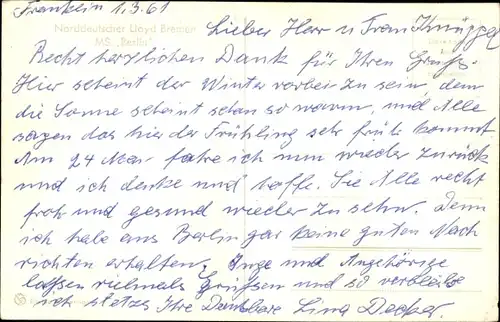 Franklin 1.3.61
Norddeutscher Lloyd Bremen
MS „Berlin"
Lieber Herr u Frau Knüppel
Recht herzlichen Dank für Ihren Gruss.
Hier scheint der Winter vorbei zu sein, denn
die Sonne scheint schon so warm, und Alle
sagen das hier der Frühling sehr früh kommt
Am 24 Mai fahre ich nun wieder zurück
und ich denke und hoffe. Sie Alle recht
froh und gesund wieder zu sehn. Denn
ich habe aus Berlin gar keine guten Nach
richten erhalten. Inge und Angehörige
lassen vielmals Grüssen und so verbleibe
ich stetzs Ihre Dankbare Lina Decker.